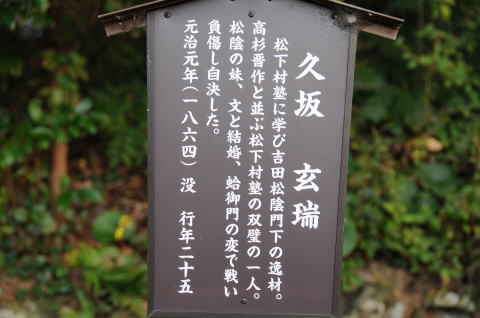 久坂　玄瑞
松下村塾に学び吉田松陰門下の逸材。
高杉晋作と並ぶ松下村塾の双璧の一人。
松陰の妹、文と結婚、蛤御門の変で戦い
負傷し自決した。
元治元年（一八六四）没　行年二十五